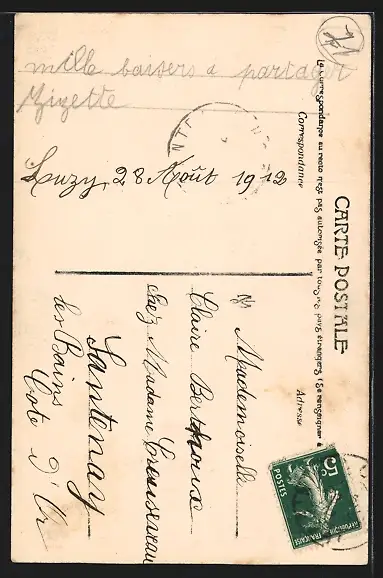 mille baisers a partager
Zizette
Luzy, 28 Août 1912
CARTE POSTALE
La correspondance au recto n'est pas autorisée par tous les pays étrangers (Se renseigner à
Correspondance
Adresse
Mademoiselle
Claire
chez Madame
Santenay
les Bains
Cote d'Or
5c
POSTES
REPUBLIQUE FRANÇAISE